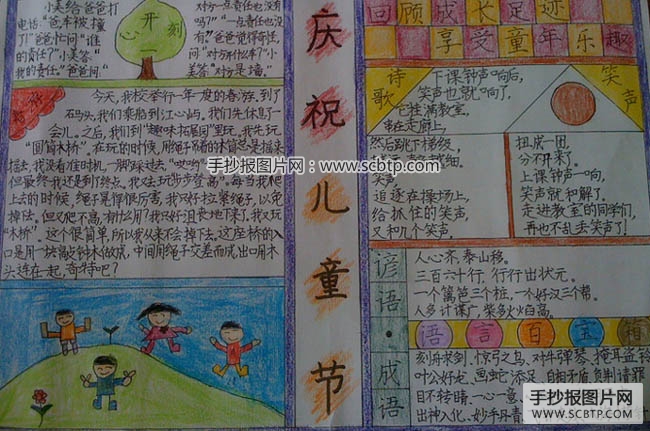 小美给爸爸打
电话，"爸车被撞
了！"爸爸忙问"谁
的责任？""小美答
我的责任。"爸爸问
开
心
一
刻
对方一点责任也没有
吗？""一点责任也没
有？"爸爸觉得奇怪，
问"对方什么车？"小
美答"对方是墙。"
今天，我校举行一年一度的春游，到了
石马头，我们乘船到江心屿。我们先休息一
会儿。之后，我们到"趣味拓展园"里玩。我先玩
"圆筒木桥"，在玩的时候，用绳子绑的木筒总是摇来
摇去，我没看准时机，一脚踩过去。"哎哟
但最终我还是到了终点。我又去玩"步步登高"。每当我爬
上去的时候，绳子晃得很厉害，我只好拉紧绳子，以免
掉下去。但又爬不高，有什么用？我只好沮丧地下来了。我又玩
"木桥"。这个很简单，所以我从来不会掉下去。这座桥的入
口是用一块高纱木做成，中间用绳子交差而成，出口用木
头连在一起，奇特吧？
庆
祝
儿
童
节
回顾成长足迹
享受童年乐趣
诗
歌
笑
声
下课钟声响后，
笑声也就响了，
它挂满教室，
串在走廊上，
然后跳下梯级，
笑声
追逐在操场上，
给抓住的笑声，
又和几个笑声，
扭成一团，
分不开来了。
上课钟声一响，
笑声就和解了，
走进教室的同学们，
再也不乱丢笑声了！
谚
语
·
成
语
人心齐，泰山移。
三百六十行，行行出状元。
一个篱笆三个桩，一个好汉三个帮。
人多计谋广，柴多火火白高。
语言百宝箱
刻舟求剑、惊弓之鸟、对牛弹琴、掩耳盗铃
叶公好龙、画蛇添足、自相矛盾、负荆请罪
目不转睛、一心一意、
出神入化、妙手丹青
手抄报图片网：www.scbtp.com
手抄报图片网
WWW.SCBTP.COM